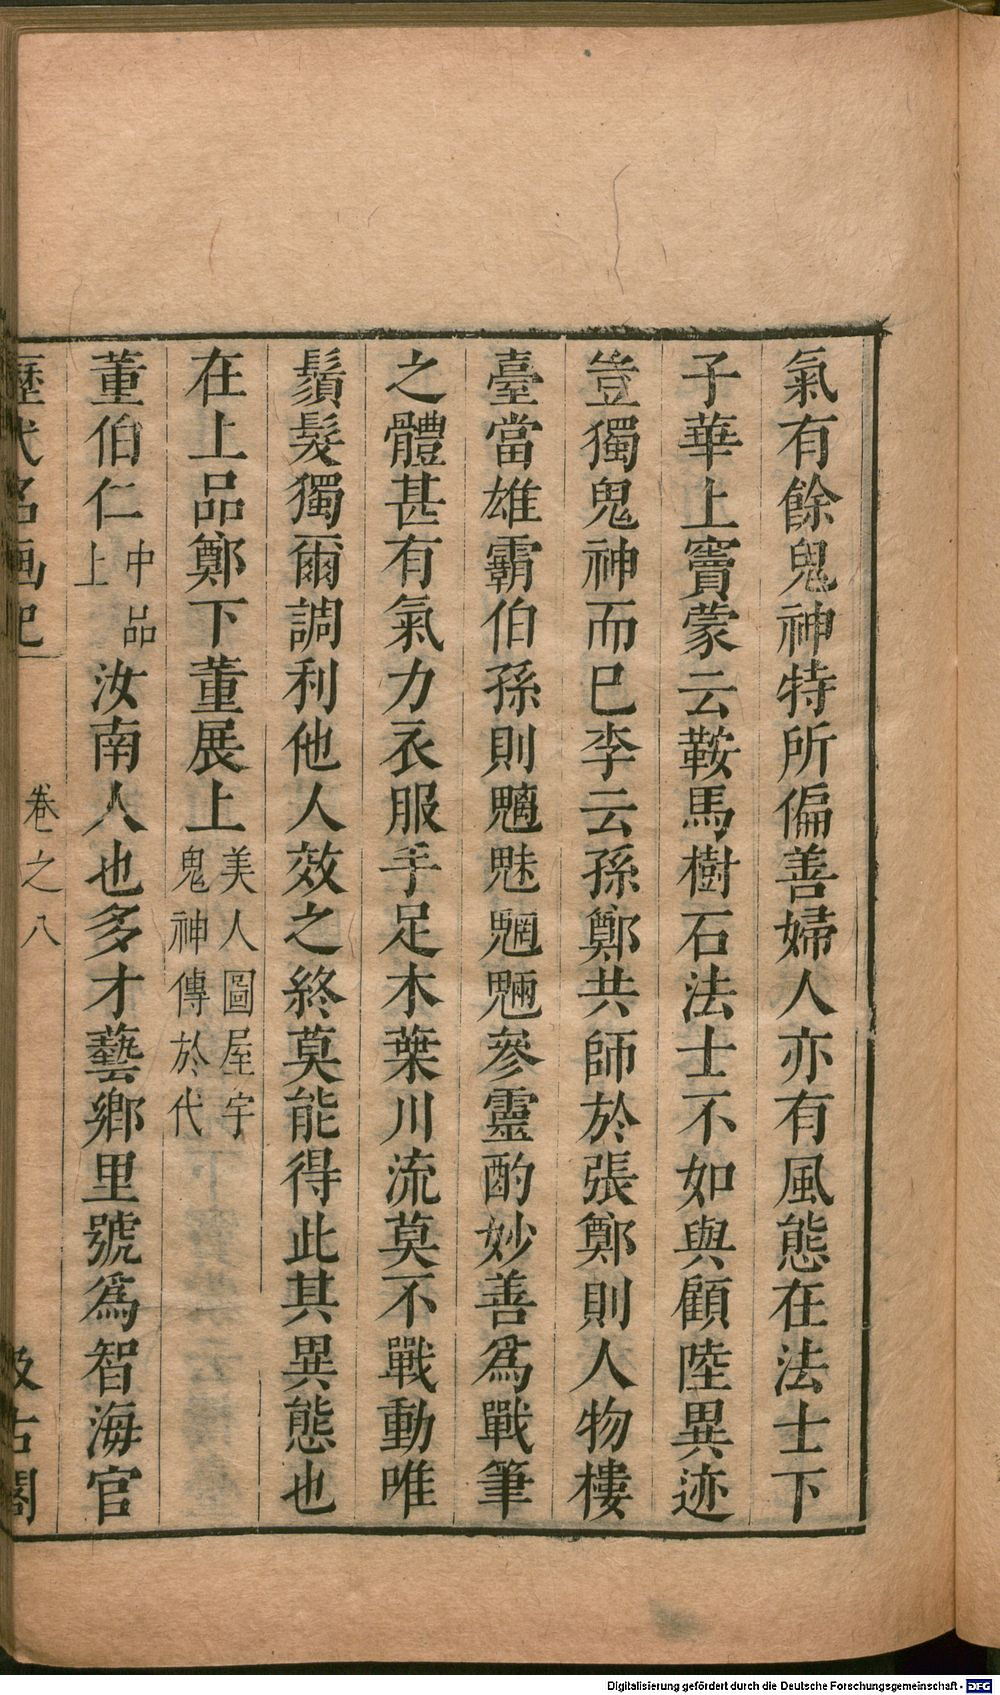 氣有餘鬼神特所偏善婦人亦有風態在法士下
子華上竇蒙云鞍馬樹石法士不如與顧陸異迹
豈獨鬼神而巳李云孫鄭共師於張鄭則人物樓
臺當雄霸伯孫則魑魅魍魎參靈酌妙善爲戰筆
之體甚有氣力衣服手足木葉川流莫不戰動唯
鬚髮獨爾調利他人效之終莫能得此其異態也
在上品鄭下董展上美人圖屋宇鬼神傳於代
董伯仁中品上汝南人也多才藝鄉里號爲智海官
歷代名画記 卷之八 汲古閣
Digitalisierung gefördert durch die Deutsche Forschungsgemeinschaft - DFG